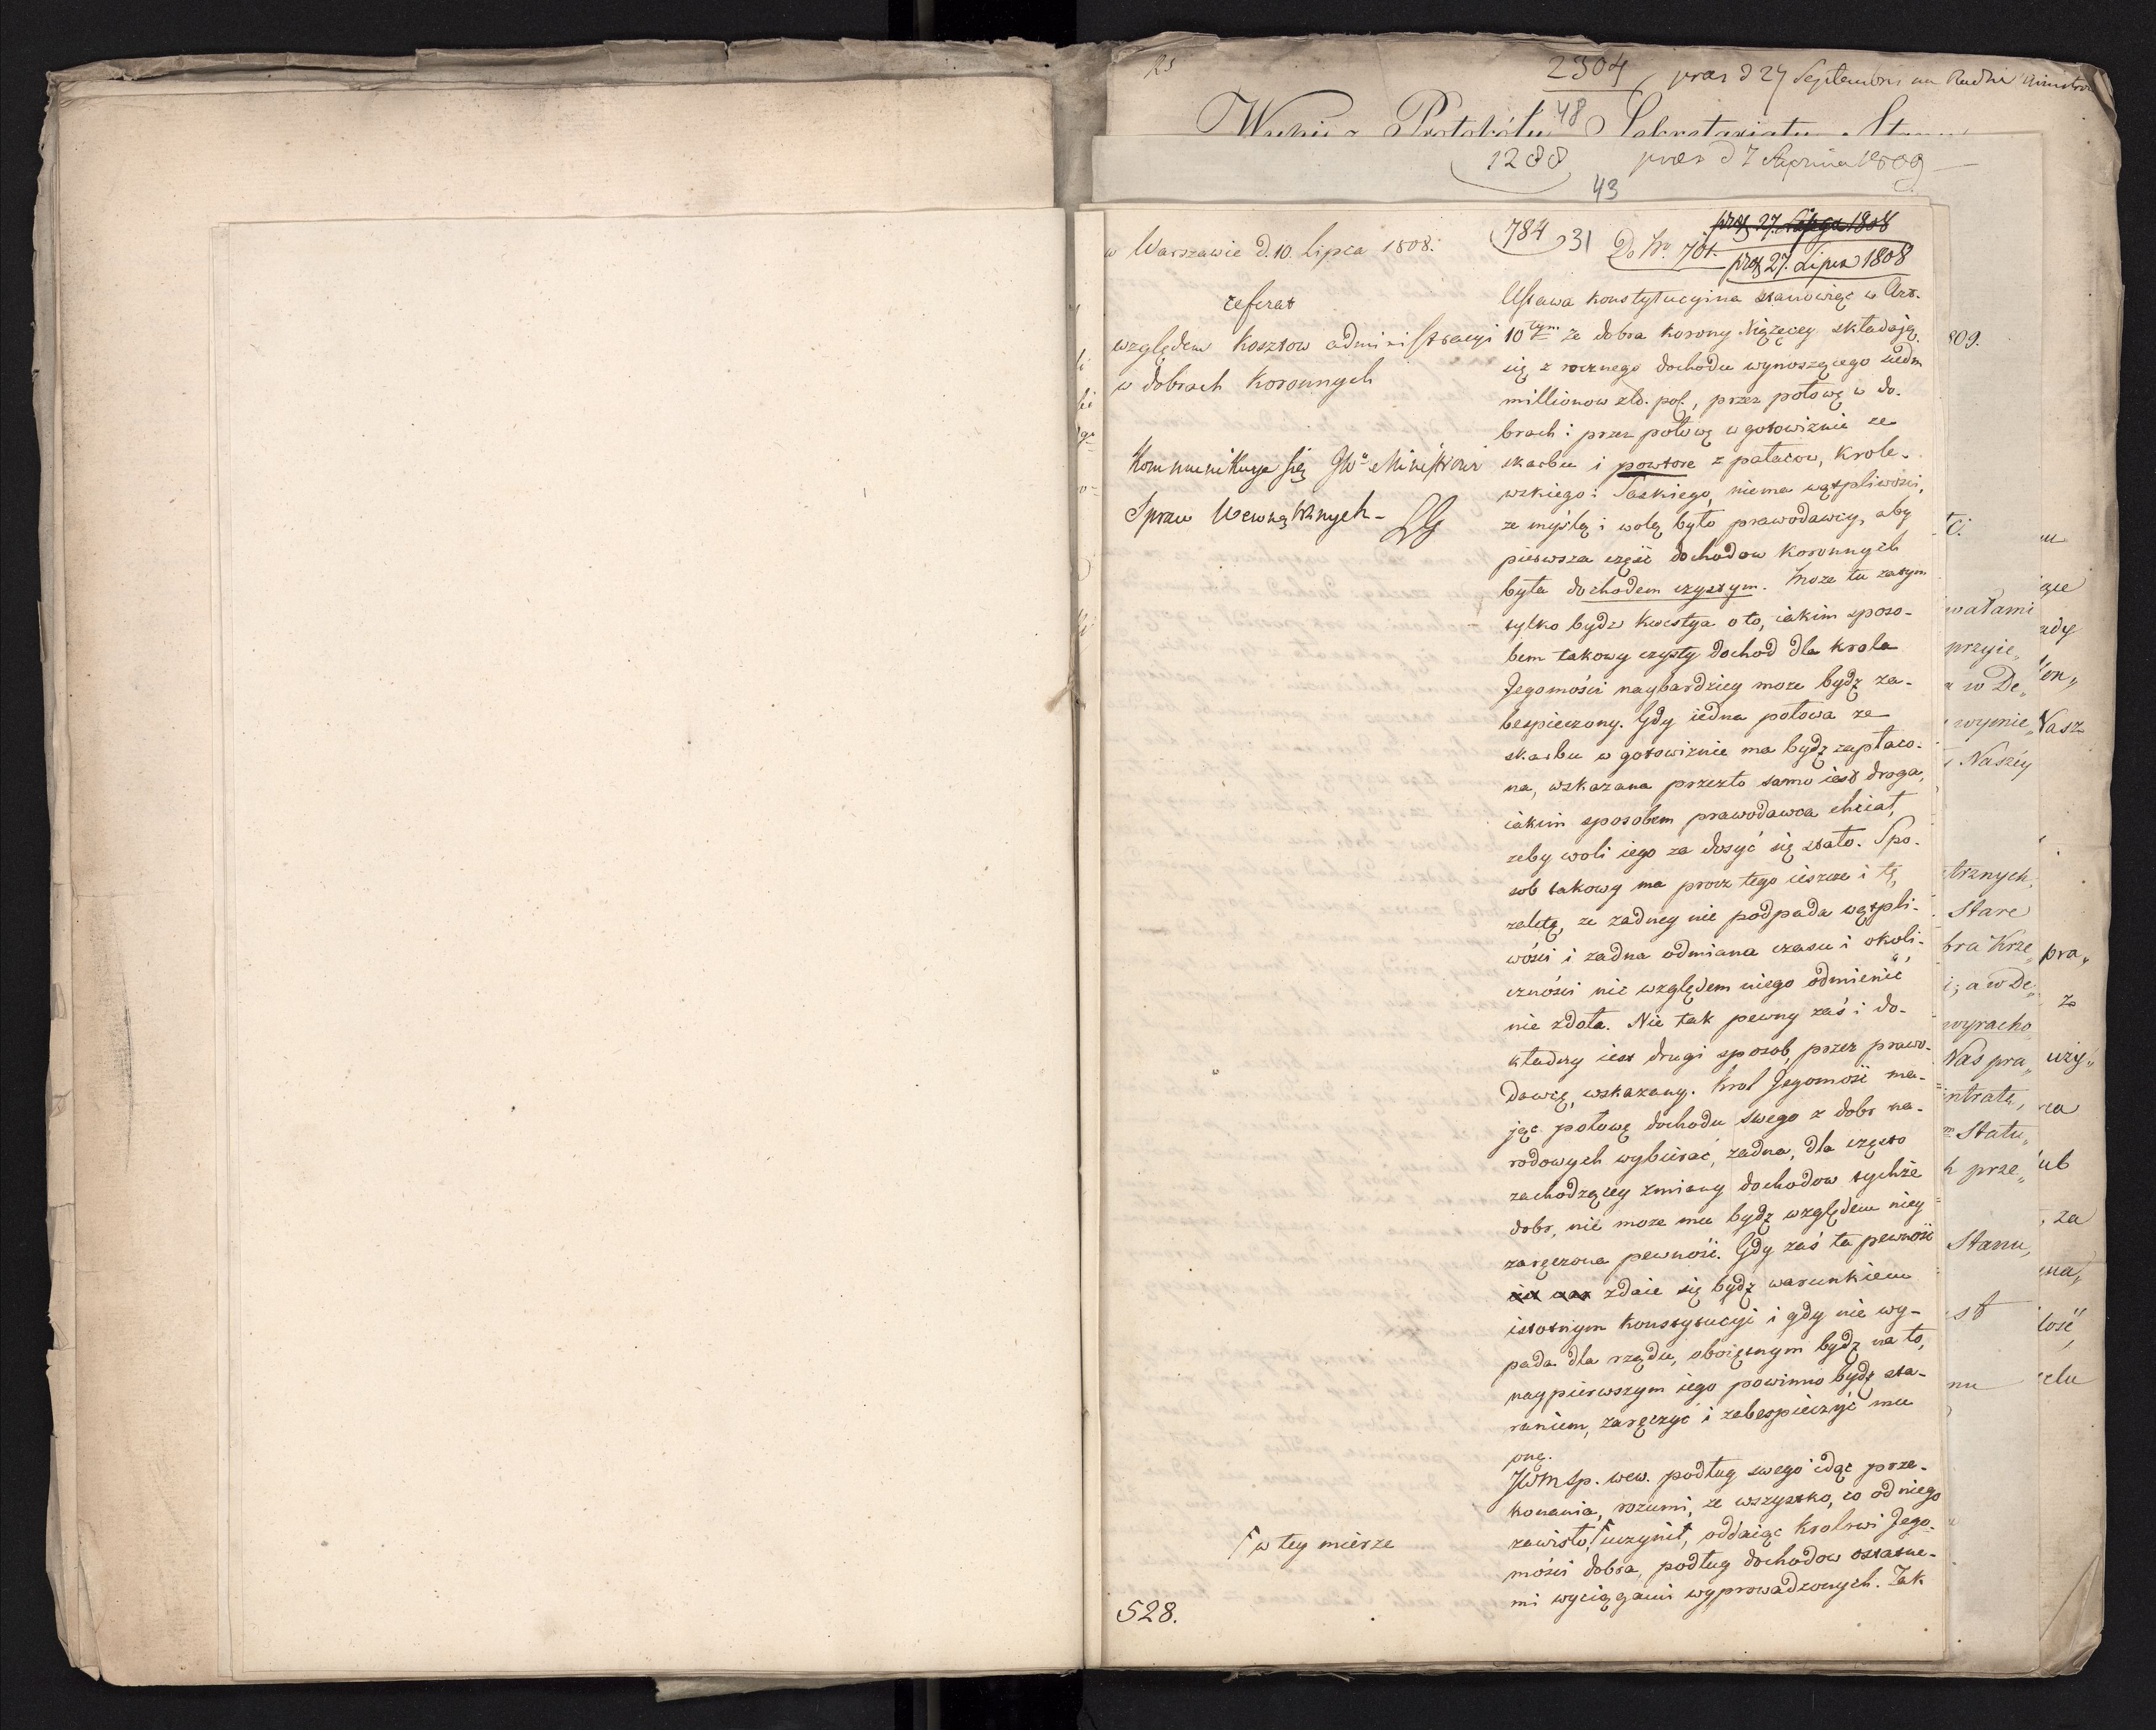 25
2304 praes d 24 Septembris na Radzie Ministrow
48
1288 praes d 7 Aprilia 1809
43
w Warszawie d. 10. lipca 1808.
784 31 Do Nr. 701.
praes 27. Lipca 1808
praes 27. Lipca 1808
referat
względem kosztow administracyi
w dobrach koronnych
Kommunikuje się JWu Ministrowi
Spraw Wewnętrznych -
Ustawa konstytucyina stanowiąc w Art.
10tym ze dobra korony Xiążęcey składaią
się z rocznego dochodu wynoszącego siedm
millionow złd. pol., przez połowę w do-
brach i przez połowę w gotowiznie ze
skarbu i powtore z pałacow, krole-
wskiego i Saskiego, niema wątpliwości,
ze myślą i wolą było prawodawcy, aby
pierwsza część dochodow koronnych
była dochodem czystym. Moze tu zatym
tylko bydź kwestya o to, iakim sposo-
bem takowy czysty dochod dla krola
Jegomości naybardziey moze bydź za-
bespieczony. Gdy iedna połowa ze
skarbu w gotowiznie ma bydź zapłaco-
na, wskazana przezto samo iest droga,
iakim sposobem prawodawca chciał,
zeby woli iego za dosyć się stało. Spo-
sob takowy ma procz tego ieszcze i tę
zaletę, ze zadney nie podpada wątpli-
wości i zadna odmiana czasu i okoli-
czności nic względem niego odmienić
nie zdoła. Nie tak pewny zaś i do-
kładny iest drugi sposob, przez prawo-
dawcę, wskazany. Krol Jegomość ma-
jąc połowę dochodu swego z dobr na-
rodowych wybierać, zadna, dla często
zachodzącey zmiany dochodow tychże
dobr, nie moze mu bydź względem niey
zaręczona pewność. Gdy zaś ta pewność
zdaie się bydź warunkiem
istotnym konstytucyi i gdy nie wy-
pada dla rządu, oboiętnym bydź na to,
naypierwszym iego powinno bydź sta-
raniem, zaręczyć i zabespieczyć mu
onę.
JWM Sp. wew. podług swego idąc prze-
konania, rozumi, ze wszystko, co od niego
zawisło, Γ uczynił, oddaiąc Krolowi Jego-
mości dobra, podług dochodow ostatne-
mi wyciągami wyprowadzonych. Tak
Γ w tey mierze
528.
809.
wałami
przyie„
w De„
wymie„
Naszéy
trznych,
Stare
bra Krze„
i; a w De„
wyracho
Nas pra„
intratę,
m Statu„
h prze„
Stanu,
Nasz
pra„
uży„
ub
za